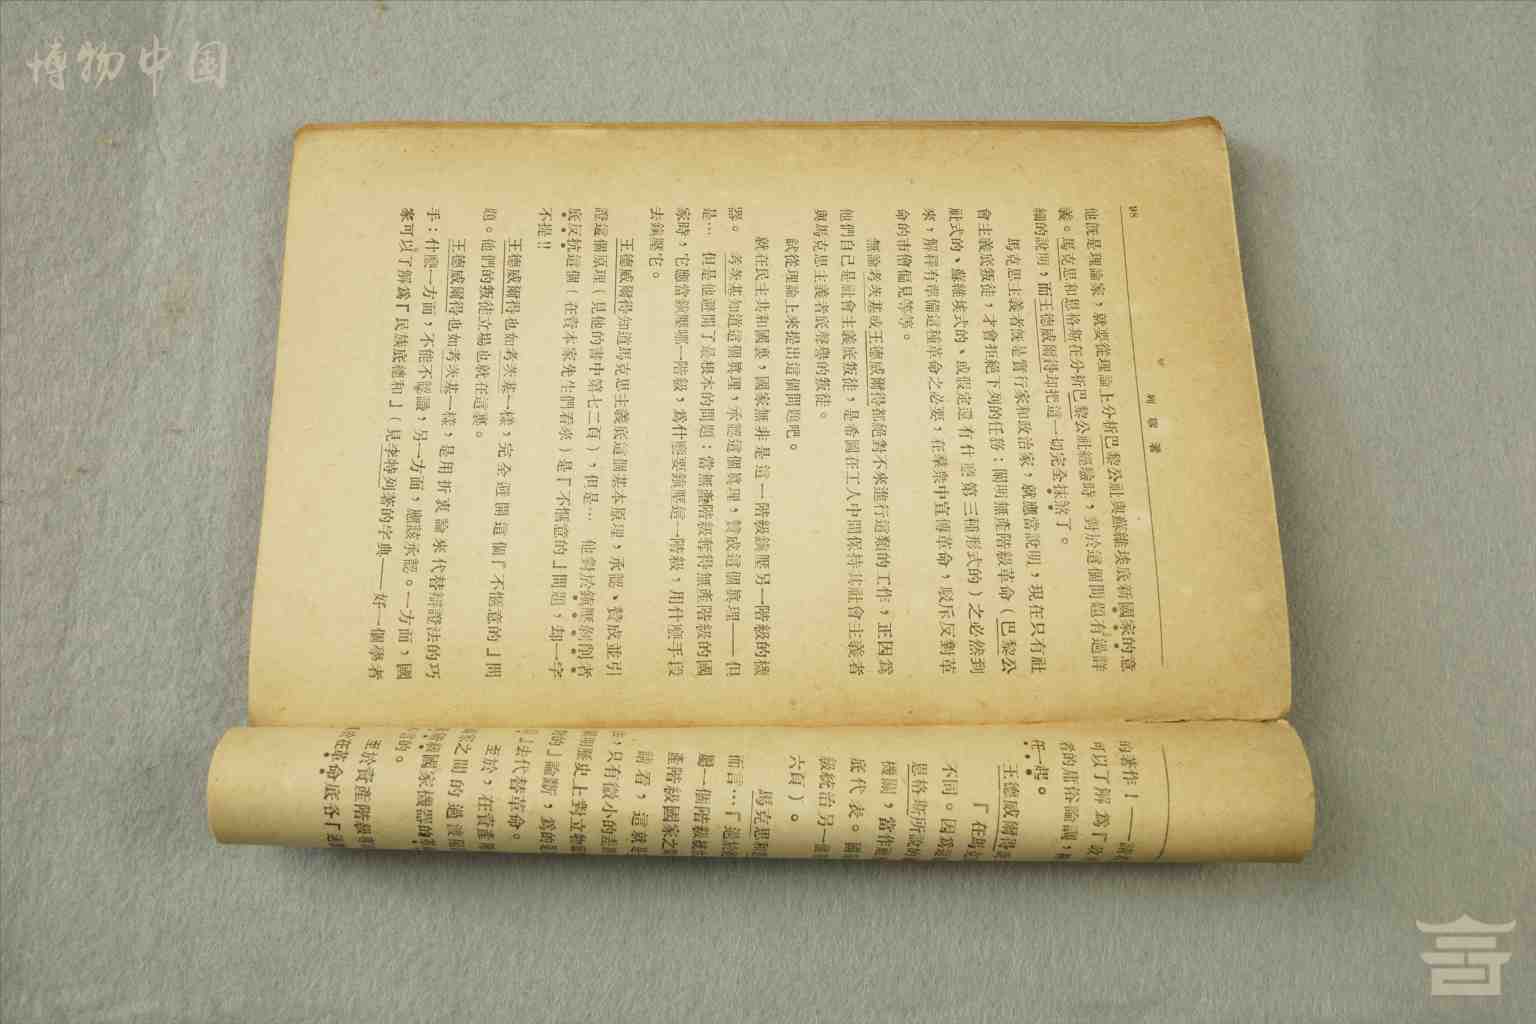 博物中国
98
列寧著
他既是理論家，就要從理論上分析巴黎公社與蘇維埃底新國家的意
義。馬克思和恩格斯在分析巴黎公社經驗時，對於這個問題有過詳
細的說明，而王德威爾得却把這一切完全抹煞了。
馬克思主義者既是實行家和政治家，就應當說明，現在只有社
會主義底叛徒，才會拒絕下列的任務：闡明無產階級革命（巴黎公
社式的、蘇維埃式的、或假定還有什麼第三種形式的）之必然到
來，解釋有準備這種革命之必要，在羣衆中宣傳革命，駁斥反對革
命的市儈偏見等等。
無論考茨基或王德威爾得都絕對不來進行這類的工作，正因爲
他們自己是社會主義底叛徒，是希圖在工人中間保持其社會主義者
與馬克思主義者底聲譽的叛徒。
試從理論上來提出這個問題吧。
就在民主共和國裏，國家無非是這一階級鎮壓另一階級的機
器。考茨基知道這個眞理，承認這個眞理，贊成這個眞理——但
是… 但是他避開了最根本的問題：當無產階級奪得無產階級的國
家時，它應當鎮壓哪一階級，爲什麼要鎮壓這一階級，用什麼手段
去鎮壓它。
王德威爾得知道馬克思主義底這個基本原理，承認、贊成並引
證這個原理（見他的書中第七二頁），但是… 他對於鎮壓剝削者
底反抗這個（在資本家先生們看來）是『不愜意的』問題，却一字
不提!!
王德威爾得也如考茨基一樣，完全避開這個『不愜意的』問
題。他們的叛徒立場也就在這裏。
王德威爾得也如考茨基一樣，是用折衷論來代替辯證法的巧
手：什麼一方面，不能不認識，另一方面，應該承認。一方面，國
家可以了解爲『民族底總和』（見李特列著的字典——好一個學者
的著作！——
可以了解爲『
者的庸俗論調，
在一起。
王德威爾得
『在馬克
不同。因爲
恩格斯所說的
機關，當作
底代表。國
級統治另一個
六頁）。
馬克思和
而言…『過
屬一個階級
產階級國家之
請看，這就
，只有微小的差
歷史上對立物
的』論斷，爲的
』去代替革命。
至於，在資產
之間的過渡
國家機器的
的。
至於資產階級
在革命底各『